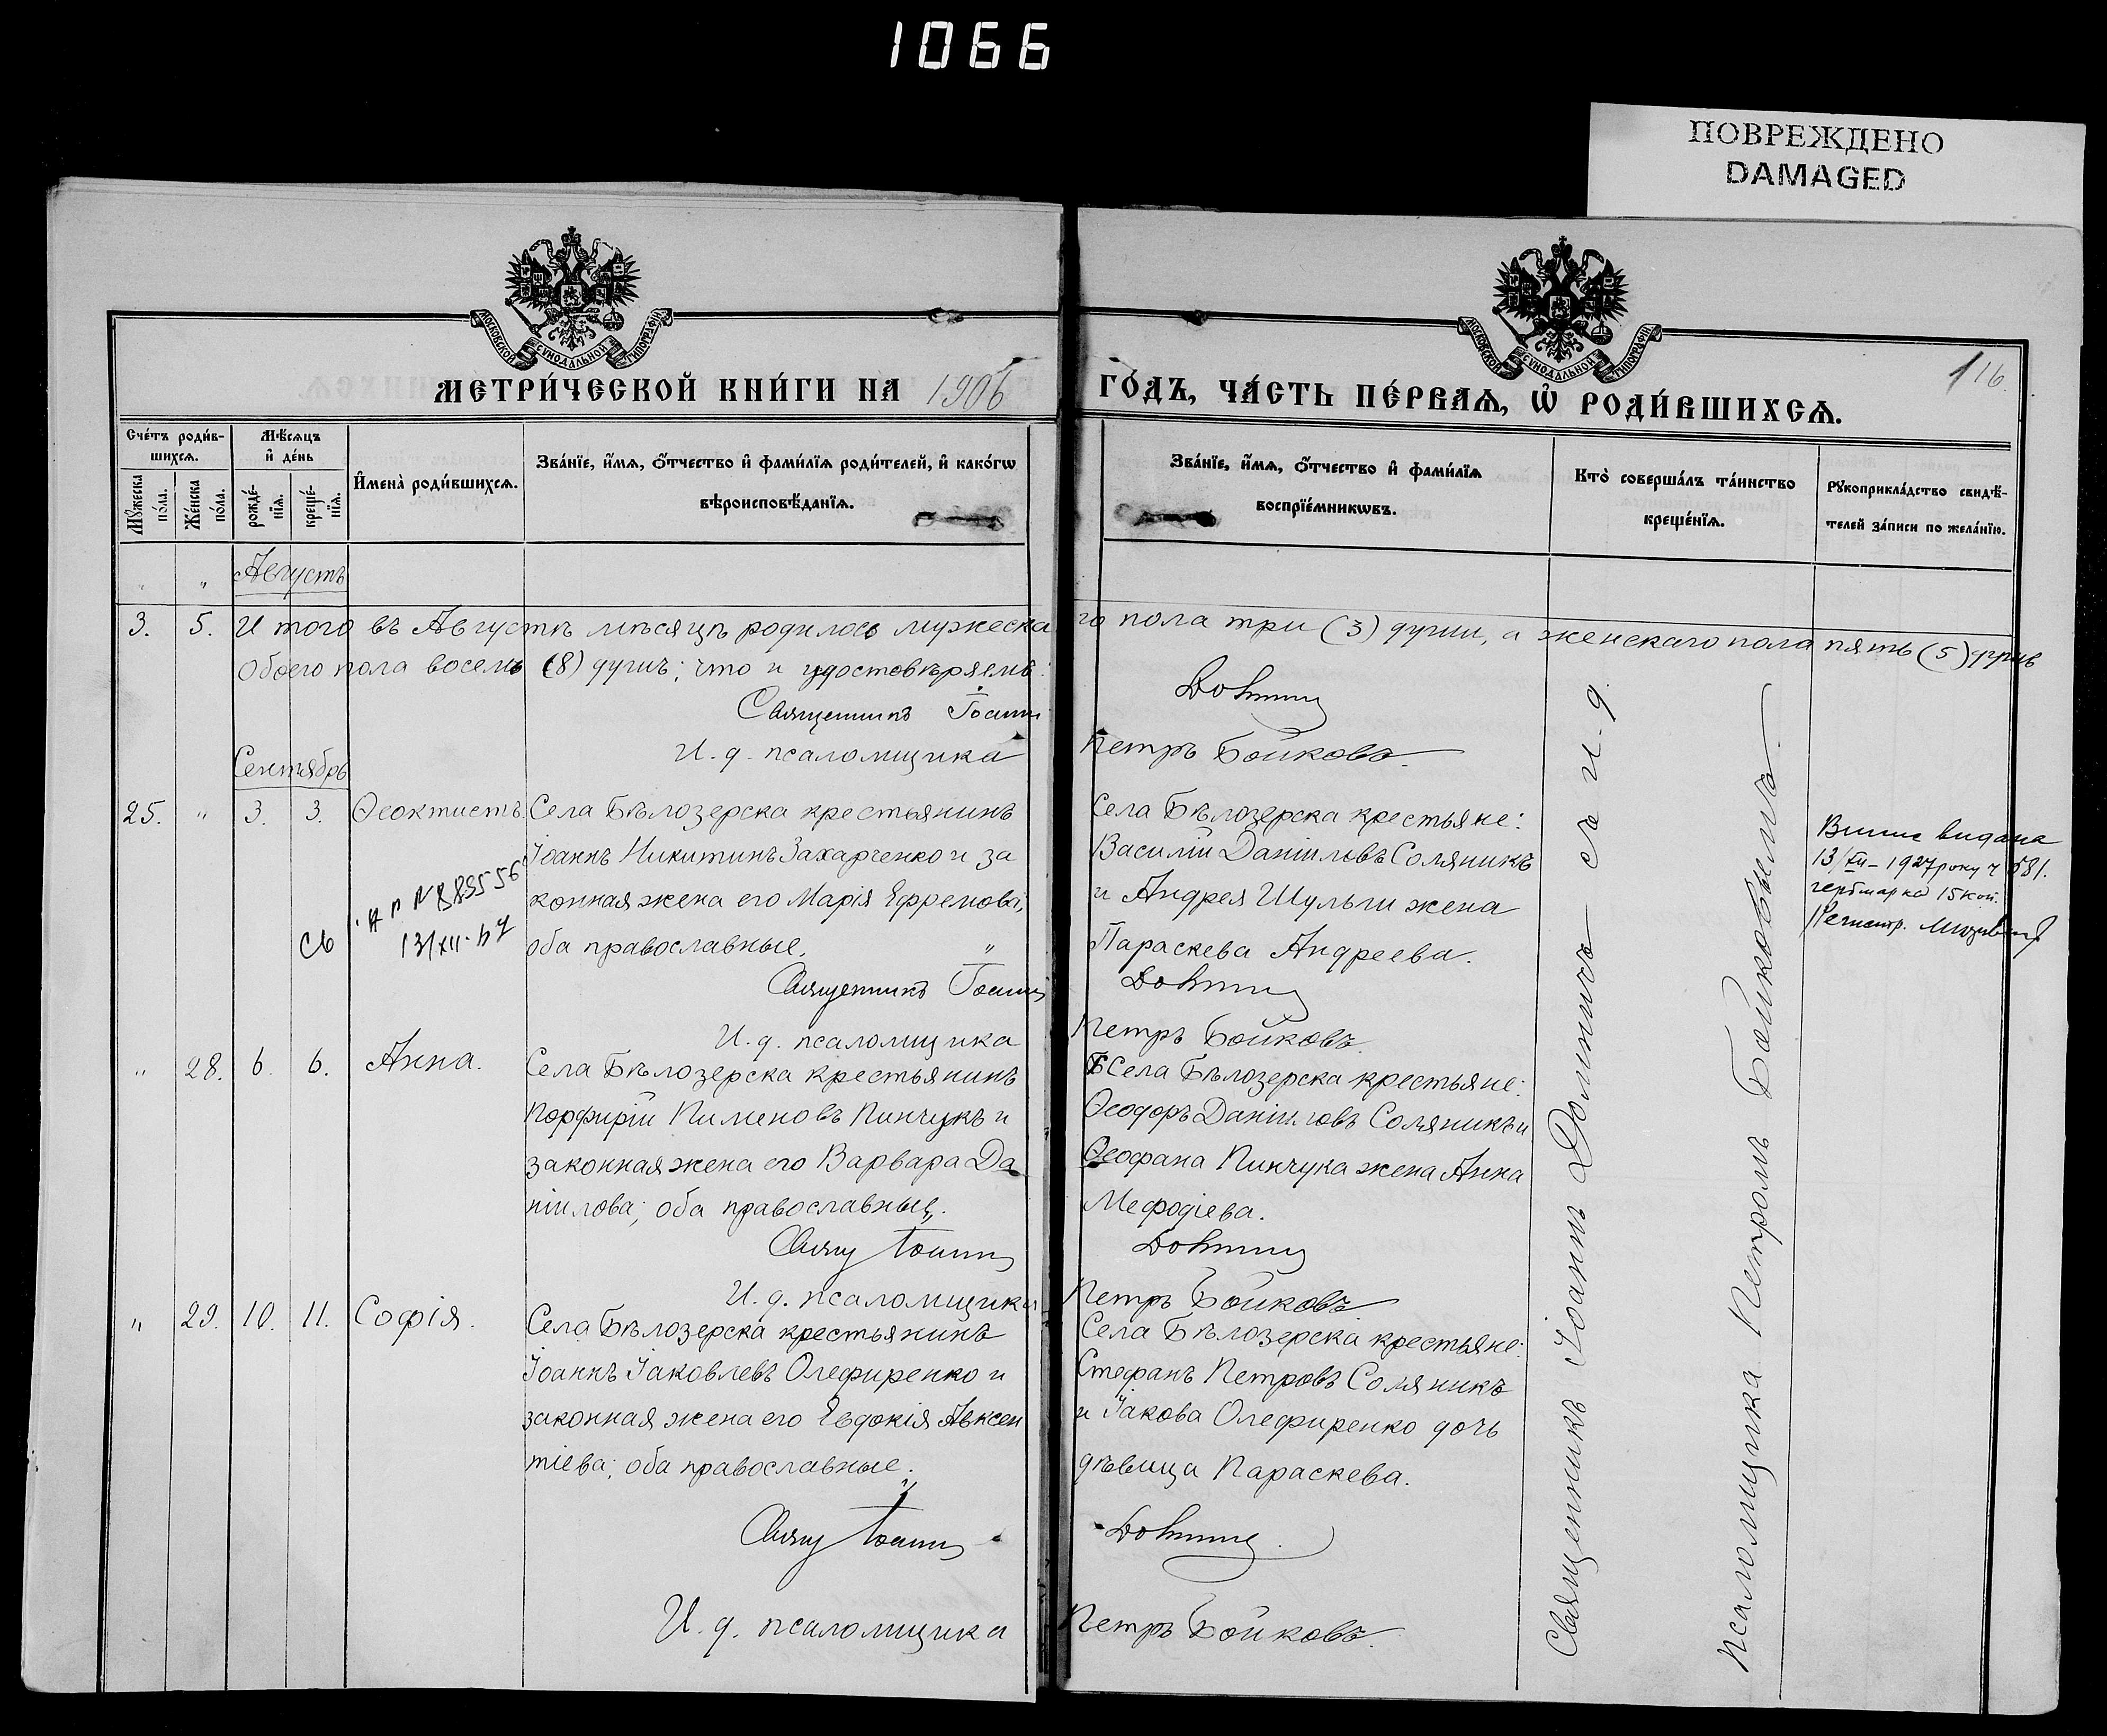 1066
ПОВРЕЖДЕНО
DAMAGED
МОСКОВСКОЙ СУНОДАЛЬНОЙ ТИПОГРАФІИ
МОСКОВСКОЙ СУНОДАЛЬНОЙ ТИПОГРАФІИ
МЕТРИ́ЧЕСКОЙ КНИ́ГИ НА 1906
ГО́ДЪ, ЧА́СТЬ ПЕ́РВАѦ, Ѽ РОДИ́ВШИХСѦ.
116.
Сче́тъ роди́в-
шихсѧ.
Мѣ́сѧцъ
и҆ де́нь
Мꙋ́жеска по́ла.
Же́нска по́ла.
рожде́-
нїѧ.
креще́-
нїѧ.
И҆мена̀ роди́вшихсѧ.
Зва́нїе, и҆́мѧ, ѻ҆́тчество и҆ фами́лїѧ роди́телей, и҆ како́гѡ
вѣроисповѣ́данїѧ.
Зва́нїе, и҆́мѧ, ѻ҆́тчество и҆ фами́лїѧ
воспрїе́мникѡвъ.
Кто̀ соверша́лъ та́инство
креще́нїѧ.
Рꙋкоприкла́дство свидѣ́-
телей за́писи по жела́нїю.
" " Августъ
3. 5. Итого въ Августѣ мѣсяцѣ родилось мужеска
го пола три (3) души, а женскаго пола пять (5) душъ
обоего пола восемь (8) душъ; что и удостовѣряемъ:
Священникъ Іоаннъ
И. д. псаломщика
Петръ Бойковъ.
Сентябрь
25. " 3. 3. Ѳеоктистъ. Села Бѣлозерска крестьянинъ
Іоаннъ Никитинъ Захарченко и за
конная жена его Марія Ефремова,
оба православные.
Священникъ Іоаннъ
И. д. псаломщика
13/XII-47
Села Бѣлозерска крестьяне:
Василій Даніиловъ Соляникъ
и Андрея Шульги жена
Параскева Андреева.
Петръ Бойковъ
видана
13/XII-1927 року ч 581.
гербмарка 15 коп.
" 28. 6. 6. Анна. Села Бѣлозерска крестьянинъ
Порфирій Пименовъ Пинчукъ и
законная жена его Варвара Да
ніилова; оба православныя.
Свящ Іоаннъ
И. д. псаломщика
Села Бѣлозерска крестьяне:
Ѳеодоръ Даніиловъ Соляникъ и
Ѳеофана Пинчука жена Анна
Мефодіева.
Петръ Бойковъ
" 29. 10. 11. Софія. Села Бѣлозерска крестьянинъ
Іоаннъ Іаковлевъ Олефиренко и
законная жена его Евдокія Авксен
тіева; оба православные.
Свящ Іоаннъ
И. д. псаломщика
Села Бѣлозерска крестьяне:
Стефанъ Петровъ Соляникъ
и Іакова Олефиренко дочь
дѣвица Параскева.
Петръ Бойковъ.
Священникъ Іоаннъ Долничъ съ и. д
псаломщика Петромъ Бойковымъ.